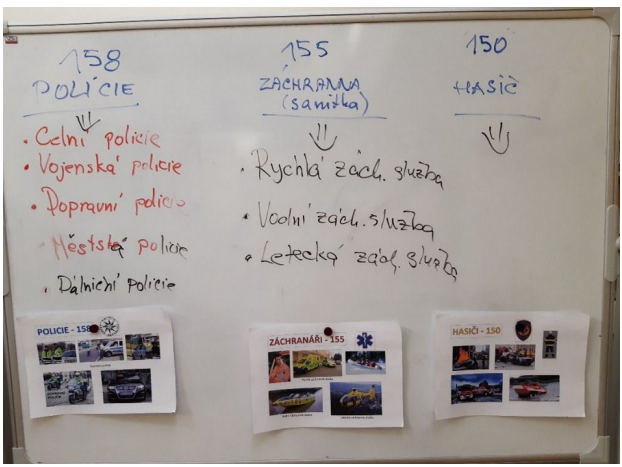 158
POLÍCIE
• Celní policie
• Vojenská policie
• Dopravní policie
• Městská policie
• Dálniční policie
155
ZÁCHRANNA
(sanitka)
• Rychlá zách. služba
• Vodní zách. služba
• Letecká zách. služba
150
HASIČ
POLICIE - 158
ZÁCHRANÁŘI - 155
HASIČI - 150